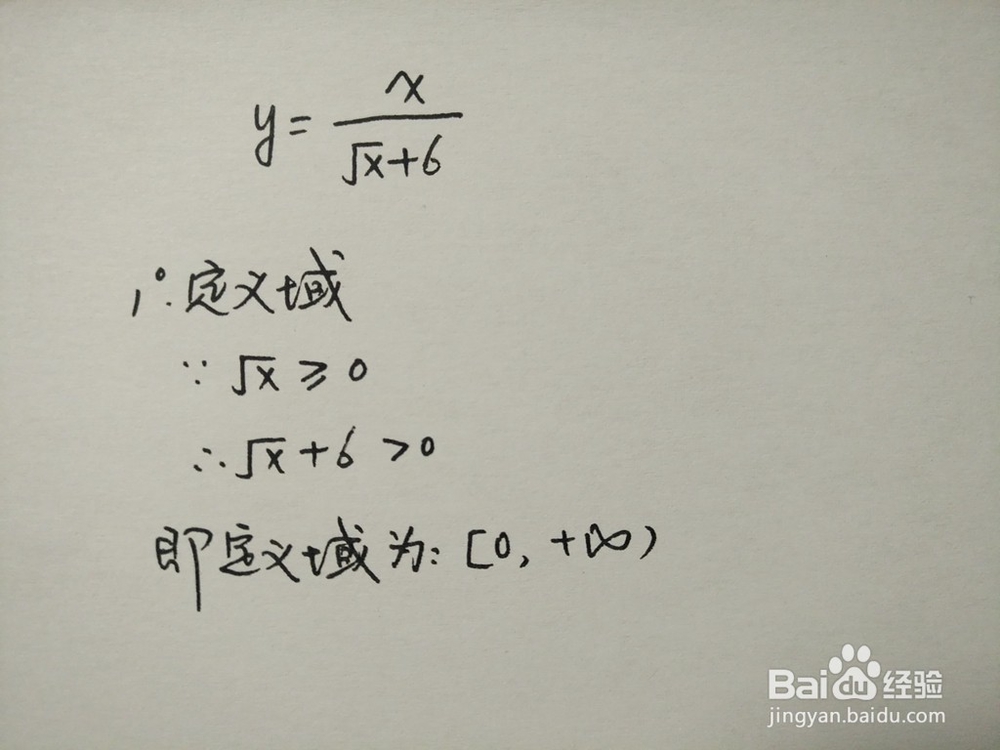 y = x / (√x+6)
1°. 定义域
∵ √x ≥ 0
∴ √x + 6 > 0
即定义域为: [0, +∞)
Baidu 经验
jingyan.baidu.com